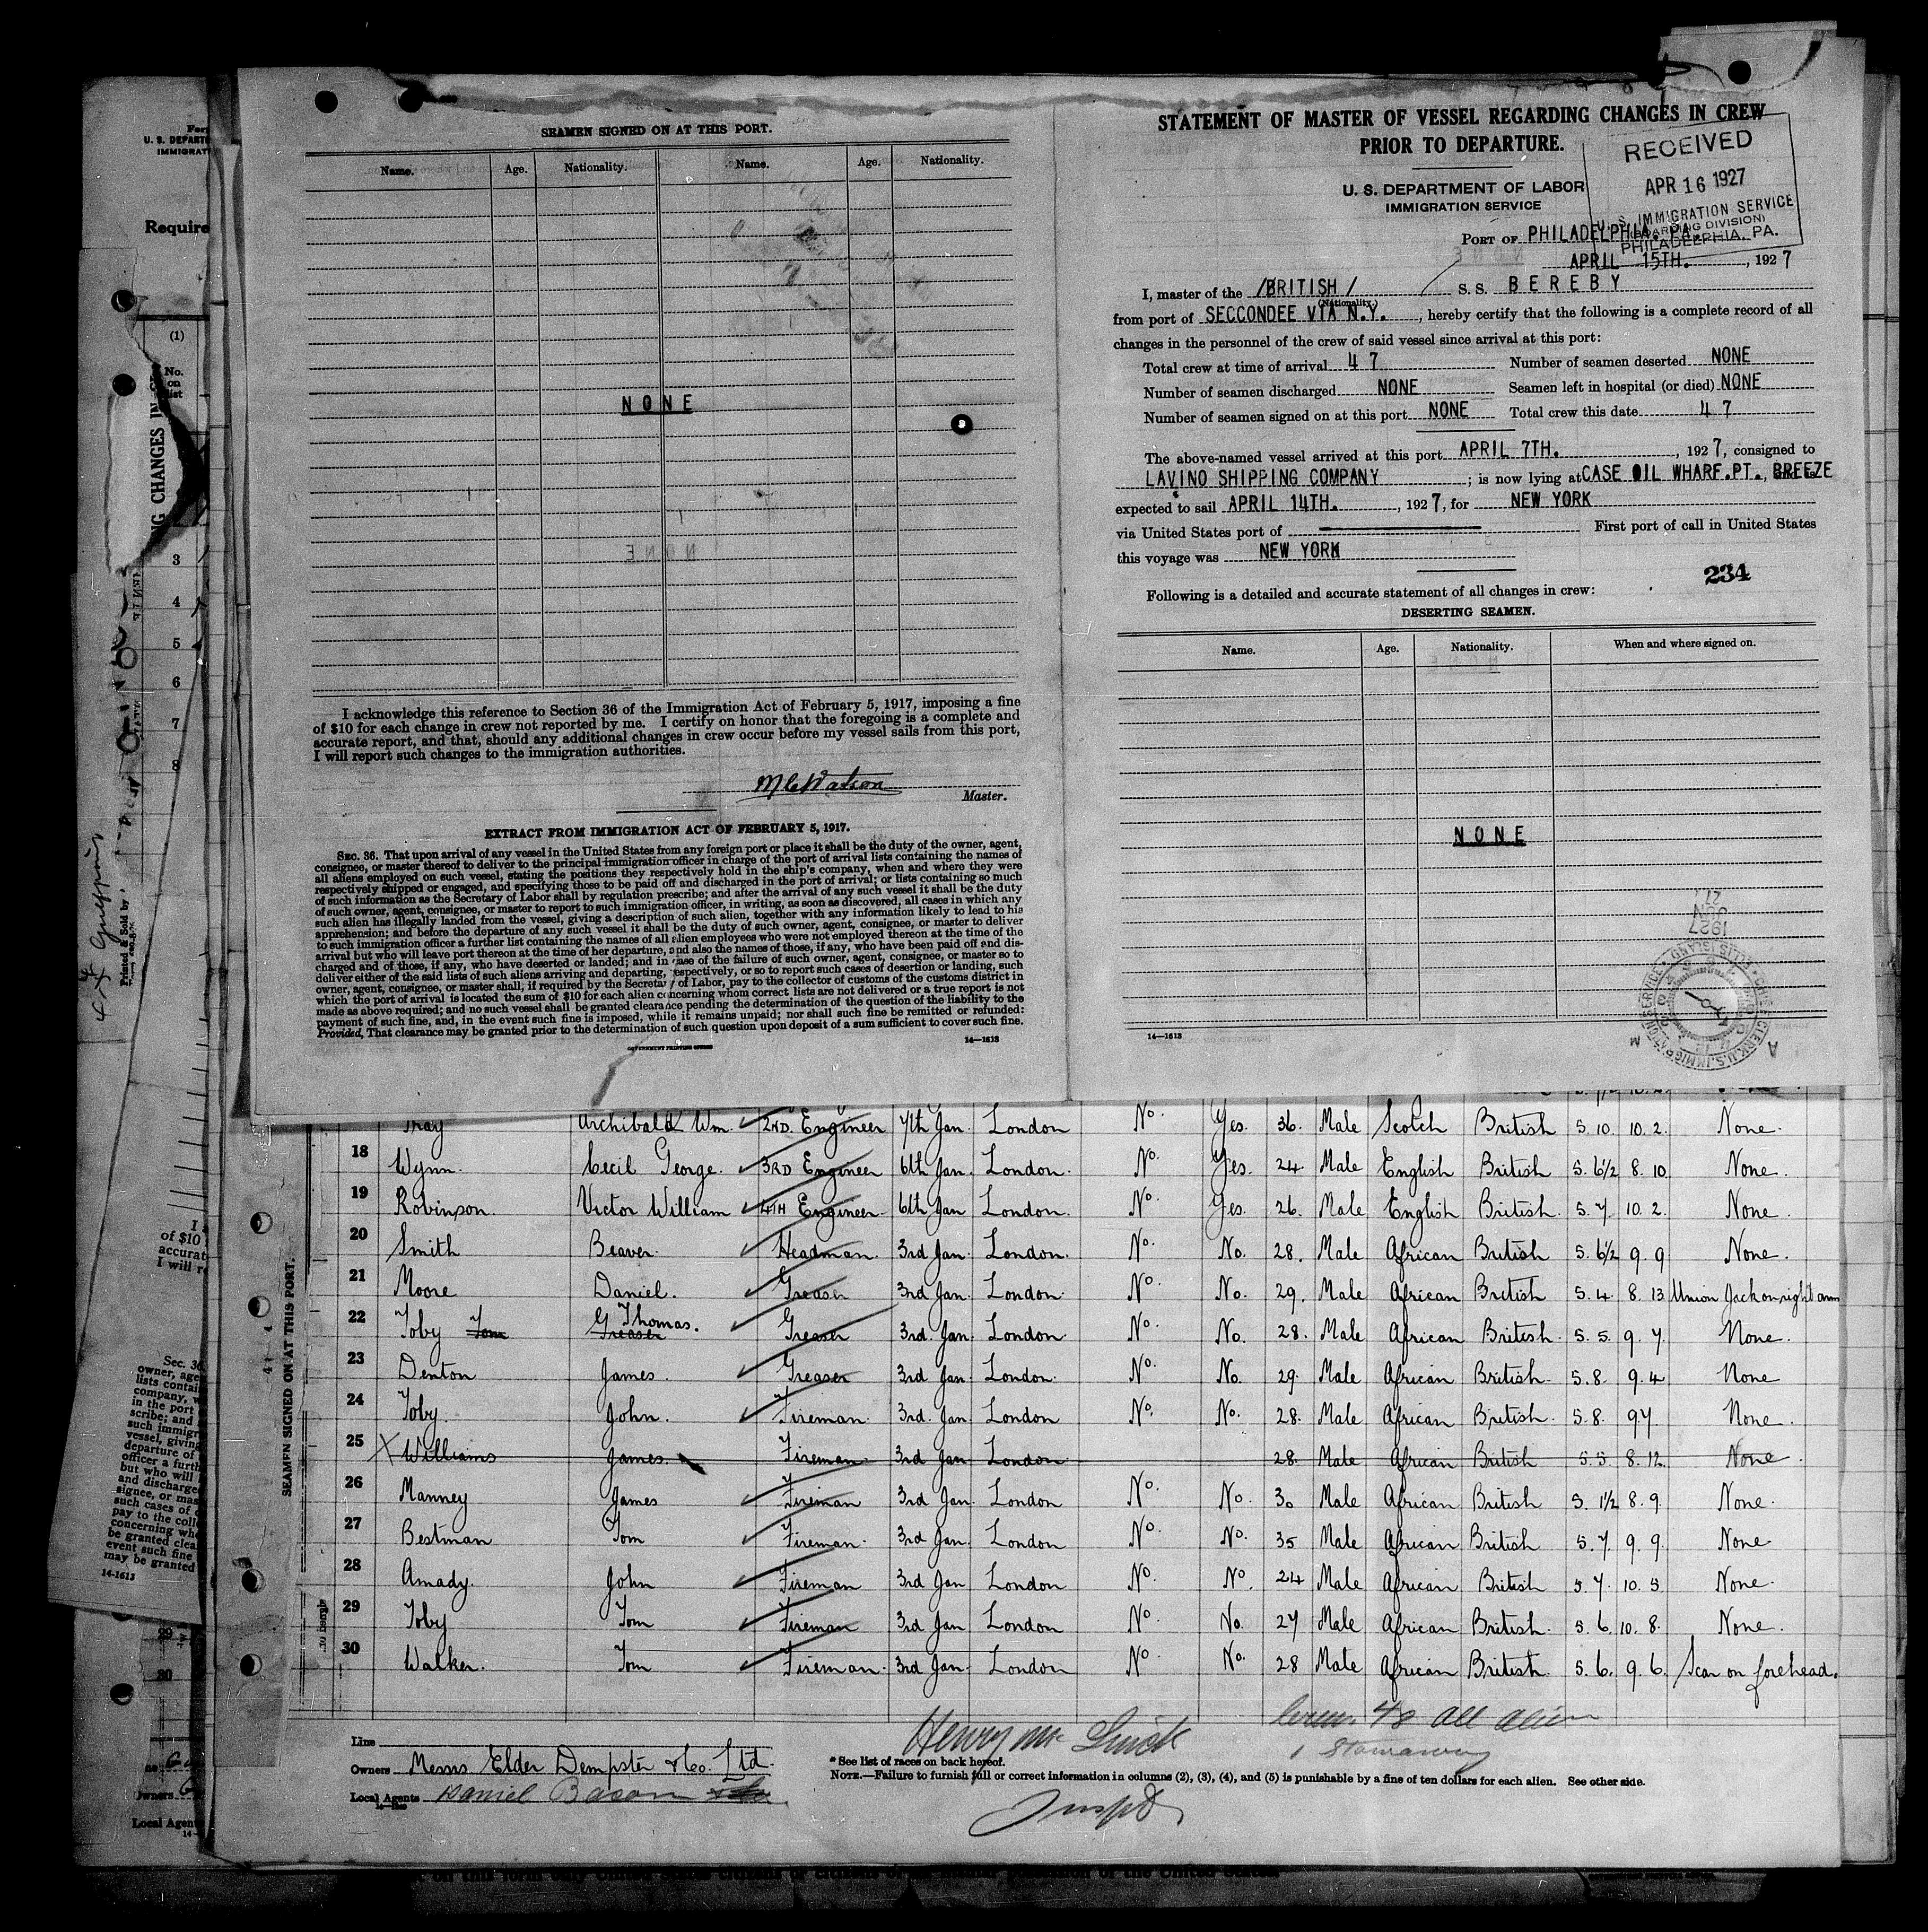 SEAMEN SIGNED ON AT THIS PORT.
Name. Age. Nationality. Name. Age. Nationality.
NONE
I acknowledge this reference to Section 36 of the Immigration Act of February 5, 1917, imposing a fine
of $10 for each change in crew not reported by me. I certify on honor that the foregoing is a complete and
accurate report, and that, should any additional changes in crew occur before my vessel sails from this port,
I will report such changes to the immigration authorities.
Watson
Master.
EXTRACT FROM IMMIGRATION ACT OF FEBRUARY 5, 1917.
SEC. 36. That upon arrival of any vessel in the United States from any foreign port or place it shall be the duty of the owner, agent,
consignee, or master thereof to deliver to the principal immigration officer in charge of the port of arrival lists containing the names of
all aliens employed on such vessel, stating the positions they respectively hold in the ship's company, when and where they were
respectively shipped or engaged, and specifying those to be paid off and discharged in the port of arrival; or lists containing so much
of such information as the Secretary of Labor shall by regulation prescribe; and after the arrival of any such vessel it shall be the duty
of such owner, agent, consignee, or master to report to such immigration officer, in writing, as soon as discovered, all cases in which any
such alien has illegally landed from the vessel, giving a description of such alien, together with any information likely to lead to his
apprehension; and before the departure of any such vessel it shall be the duty of such owner, agent, consignee, or master to deliver
to such immigration officer a further list containing the names of all alien employees who were not employed thereon at the time of the
arrival but who will leave port thereon at the time of her departure, and also the names of those, if any, who have been paid off and dis-
charged and of those, if any, who have deserted or landed; and in case of the failure of such owner, agent, consignee, or master so to
deliver either of the said lists of such aliens arriving and departing, respectively, or so to report such cases of desertion or landing, such
owner, agent, consignee, or master shall; if required by the Secretary of Labor, pay to the collector of customs of the customs district in
which the port of arrival is located the sum of $10 for each alien concerning whom correct lists are not delivered or a true report is not
made as above required; and no such vessel shall be granted clearance pending the determination of the question of the liability to the
payment of such fine, and, in the event such fine is imposed, while it remains unpaid; nor shall such fine be remitted or refunded:
Provided, That clearance may be granted prior to the determination of such question upon deposit of a sum sufficient to cover such fine.
GOVERNMENT PRINTING OFFICE 14—1613
STATEMENT OF MASTER OF VESSEL REGARDING CHANGES IN CREW
PRIOR TO DEPARTURE.
RECEIVED
APR 16 1927
U.S. IMMIGRATION SERVICE
PHILADELPHIA, PA.
U. S. DEPARTMENT OF LABOR
IMMIGRATION SERVICE
PORT OF PHILADELPHIA, PA.
APRIL 15TH. , 1927
I, master of the /BRITISH/ S. S. BEREBY
(Nationality.)
from port of SECCONDEE VIA N.Y. , hereby certify that the following is a complete record of all
changes in the personnel of the crew of said vessel since arrival at this port:
Total crew at time of arrival 47 Number of seamen deserted NONE
Number of seamen discharged NONE Seamen left in hospital (or died) NONE
Number of seamen signed on at this port NONE Total crew this date 47
The above-named vessel arrived at this port APRIL 7TH. , 1927, consigned to
LAVINO SHIPPING COMPANY ; is now lying at CASE OIL WHARF.PT., BREEZE
expected to sail APRIL 14TH. , 1927, for NEW YORK
via United States port of First port of call in United States
this voyage was NEW YORK
234
Following is a detailed and accurate statement of all changes in crew:
DESERTING SEAMEN.
Name. Age. Nationality. When and where signed on.
NONE
14—1613
Archibald Wm. 2ND. Engineer 7th Jan. London No. Yes. 36. Male Scotch British 5.10. 10.2. None.
18 Wynn. Cecil George. 3RD Engineer 6th Jan. London. No. Yes. 24. Male English British 5.6½ 8.10. None.
19 Robinson. Victor William 4TH Engineer. 6th Jan London. No. Yes. 26. Male English British. 5.7. 10.2. None.
20 Smith Beaver. Headman. 3rd Jan. London. No. No. 28. Male African British 5.6½ 9.9 None.
21 Moore Daniel. Greaser 3rd Jan. London. No. No. 29. Male African British 5.4. 8.13. Union Jack on right arm
22 Toby Tom G Thomas. Greaser Greaser 3rd. Jan London. No. No. 28. Male African British. 5.5. 9.7. None.
23 Denton James. Greaser 3rd Jan London. No. No. 29. Male African British. 5.8. 9.4 None
24 Toby. John. Fireman. 3rd. Jan London No. No. 28. Male African British. 5.8. 9.7 None.
25 X Williams James. Fireman. 3rd Jan London. 28. Male African British 5.5. 8.12. None.
26 Manney James Fireman 3rd Jan. London No. No. 30 Male African British 5.1½ 8.9. None.
27 Bestman Tom Fireman. 3rd Jan. London No. No. 35 Male African British 5.7. 9.9. None
28 Amady. John Fireman 3rd Jan London No. No. 24 Male African British 5.7. 10.5. None.
29 Toby Tom Fireman 3rd Jan London No. No. 27 Male African British. 5.6. 10.8. None.
30 Walker. Tom Fireman. 3rd Jan. London No. No. 28 Male African British. 5.6. 9.6. Scar on forehead.
Crew. 48 all alien
1 Stowaway
Line
Owners Messrs Elder Dempster & Co. Ltd.
Local Agents Daniel Bacon
*See list of races on back hereof.
NOTE.—Failure to furnish full or correct information in columns (2), (3), (4), and (5) is punishable by a fine of ten dollars for each alien. See other side.
SEAMEN SIGNED ON AT THIS PORT.